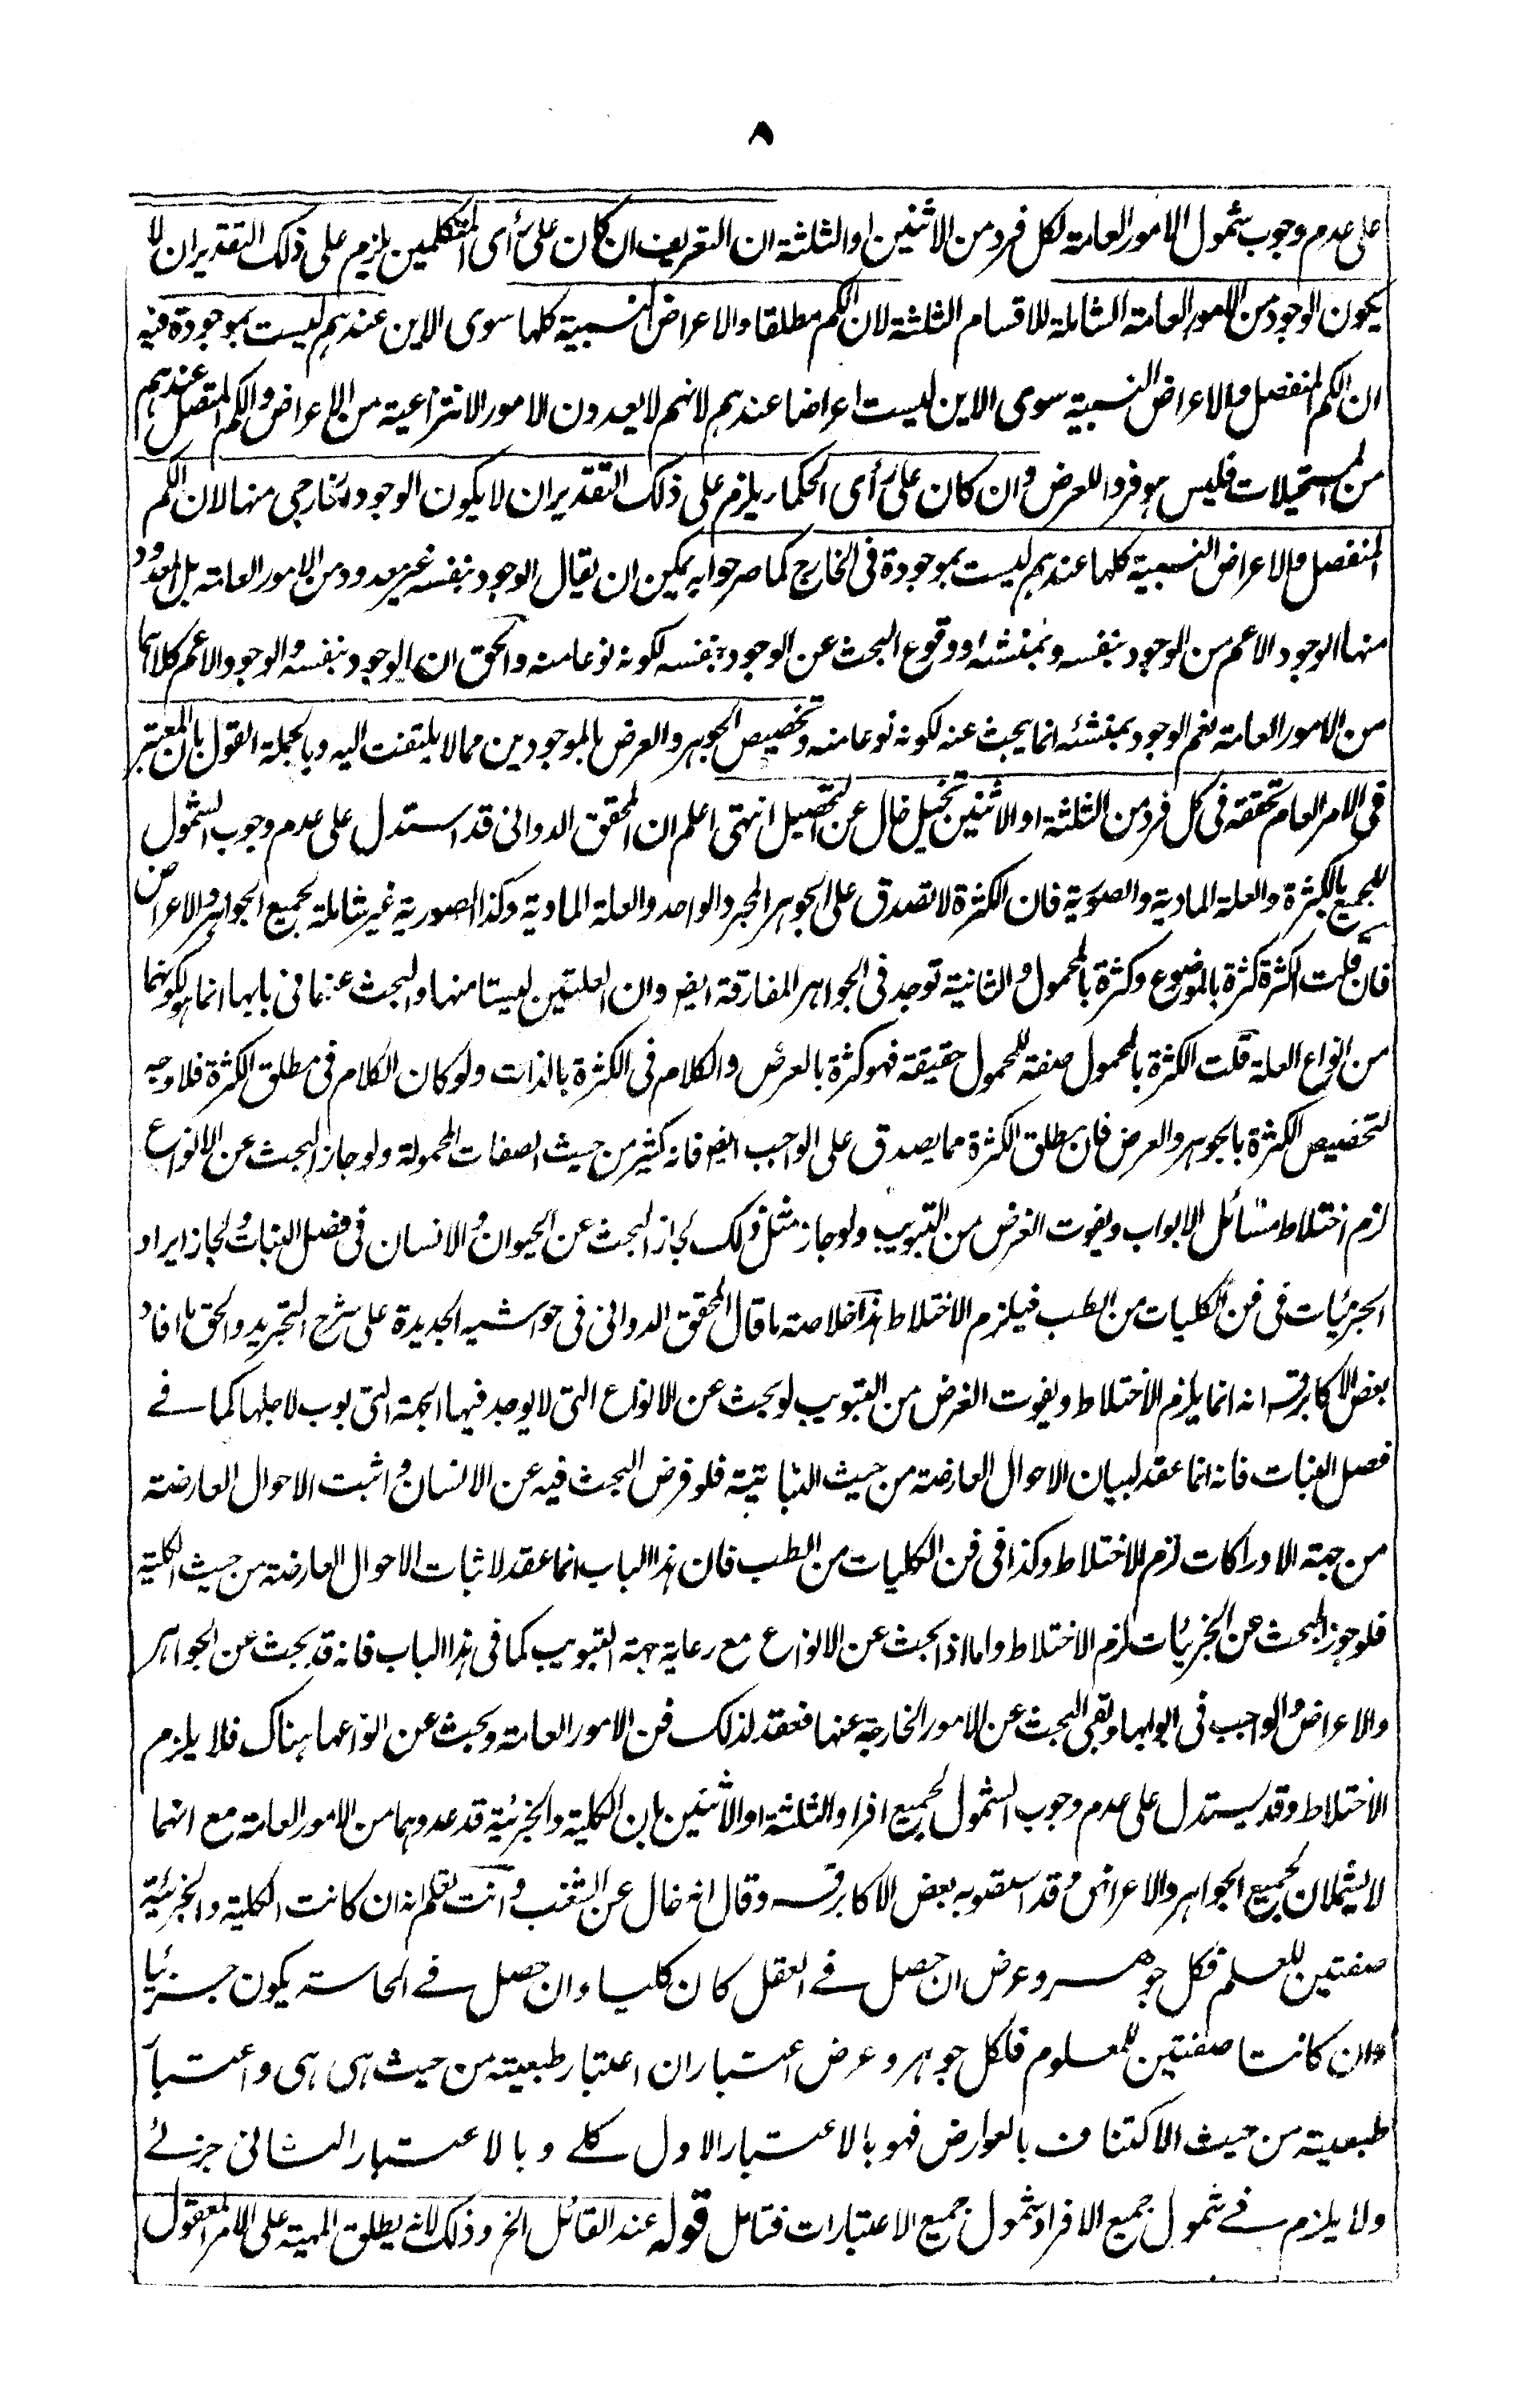 ۸
على عدم وجوب شمول الامور العامة لكل فرد من الاثنين او الثلثة ان التعريف ان كان على رأى المتكلمين يلزم على ذلك التقدير ان لا
يكون الوجود من الامور العامة الشاملة للاقسام الثلثة لان الكم مطلقا والاعراض النسبية كلها سوى الاين عندهم ليست بموجودة فيه
ان الكم المنفصل والاعراض النسبية سوى الاين ليست اعراضا عندهم لانهم لا يعدون الامور الانتزاعية من الاعراض والكم المتصل عندهم
من المستحيلات فليس هو فرد اللعرض وان كان على رأى الحكماء يلزم على ذلك التقدير ان لا يكون الوجود الخارجى منها لان الكم
المنفصل والاعراض النسبية كلها عندهم ليست بموجودة فى الخارج كما صرحوا به يمكن ان يقال الوجود بنفسه غير معدود من الامور العامة بل المعدود
منها الوجود الاعم من الوجود بنفسه وبمنشئه او وقوع البحث عن الوجود بنفسه لكونه نوعا منه والحق ان الوجود بنفسه والوجود الاعم كلاهما
من الامور العامة نعم الوجود بمنشئه انما يبحث عنه لكونه نوعا منه وتخصيص الجوهر والعرض بالموجودين مما لا يلتفت اليه وبالجملة القول بان المعتبر
فى الامر العام تحققه فى كل فرد من الثلثة او الاثنين تخييل خال عن التحصيل انتهى اعلم ان المحقق الدوانى قد استدل على عدم وجوب الشمول
للجميع بالكثرة والعلة المادية والصورية فان الكثرة لا تصدق على الجوهر المجرد الواحد والعلة المادية وكذا الصورية غير شاملة لجميع الجواهر والاعراض
فان قلت الكثرة كثرة بالموضوع وكثرة بالمحمول والثانية توجد فى الجواهر المفارقة ايضا وان العلتين ليستا منها والبحث عنهما فى بابها انما هو لكونهما
من انواع العلة قلت الكثرة بالمحمول صفة للمحمول حقيقة فهو كثرة بالعرض والكلام فى الكثرة بالذات ولو كان الكلام فى مطلق الكثرة فلا وجه
لتخصيص الكثرة بالجوهر والعرض فان مطلق الكثرة مما يصدق على الواجب ايضا فانه كثير من حيث الصفات المحمولة ولو جاز البحث عن الانواع
لزم اختلاط مسائل الابواب ويفوت الغرض من التبويب ولو جاز مثل ذلك لجاز البحث عن الحيوان والانسان فى فصل النبات ولجاز ايراد
الجزئيات فى فن الكليات من الطب فيلزم الاختلاط هذا خلاصة ما قال المحقق الدوانى فى حواشيه الجديدة على شرح التجريد والحق ما افاد
بعض الاكابر قسه انه انما يلزم الاختلاط ويفوت الغرض من التبويب لو بحث عن الانواع التى لا يوجد فيها الجهة التى بوب لاجلها كما فے
فصل النبات فانه انما عقد لبيان الاحوال العارضة من حيث النباتية فلو فرض البحث فيه عن الانسان واثبت الاحوال العارضة
من جهة الادراكات لزم الاختلاط وكذا فى فن الكليات من الطب فان هذا الباب انما عقد لاثبات الاحوال العارضة من حيث الكلية
فلو جوز البحث عن الجزئيات لزم الاختلاط واما اذا بحث عن الانواع مع رعاية جهة التبويب كما فى هذا الباب فانه قد بحث عن الجواهر
والاعراض والواجب فى ابوابها وبقى البحث عن الامور الخارجة عنها فعقد لذلك فن الامور العامة وبحث عن انواعها هناك فلا يلزم
الاختلاط وقد يستدل على عدم وجوب الشمول لجميع افراد الثلثة او الاثنين بان الكلية والجزئية قد عدوهما من الامور العامة مع انهما
لا يشملان لجميع الجواهر والاعراض وقد استصوبه بعض الاكابر قسه وقال انه خال عن الشغب وانت تعلم انه ان كانت الكلية والجزئية
صفتين للعلم فكل جوهر وعرض ان حصل فے العقل كان كليا وان حصل فے الحاسة يكون جزئيا
وان كانتا صفتين للمعلوم فلكل جوهر وعرض اعتباران اعتبار طبعيته من حيث هى هى واعتبار
طبعيته من حيث الاكتناف بالعوارض فهو بالاعتبار الاول كلے وبالاعتبار الثانى جزئے
ولا يلزم فے شمول جميع الافراد شمول جميع الاعتبارات فتامل قوله عند القائل الخ وذلك لانه يطلق المهية على الامر المعقول